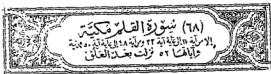 (٦٨) سُوْرَةُ القَلَمِ مَكِيَّة
الا من آية ١٧ إلى غاية آية ٣٣ ومن آية ٤٨ إلى غاية آية ٥٠ فمدنية
وآياتها ٥٢ نزلت بعد العلق